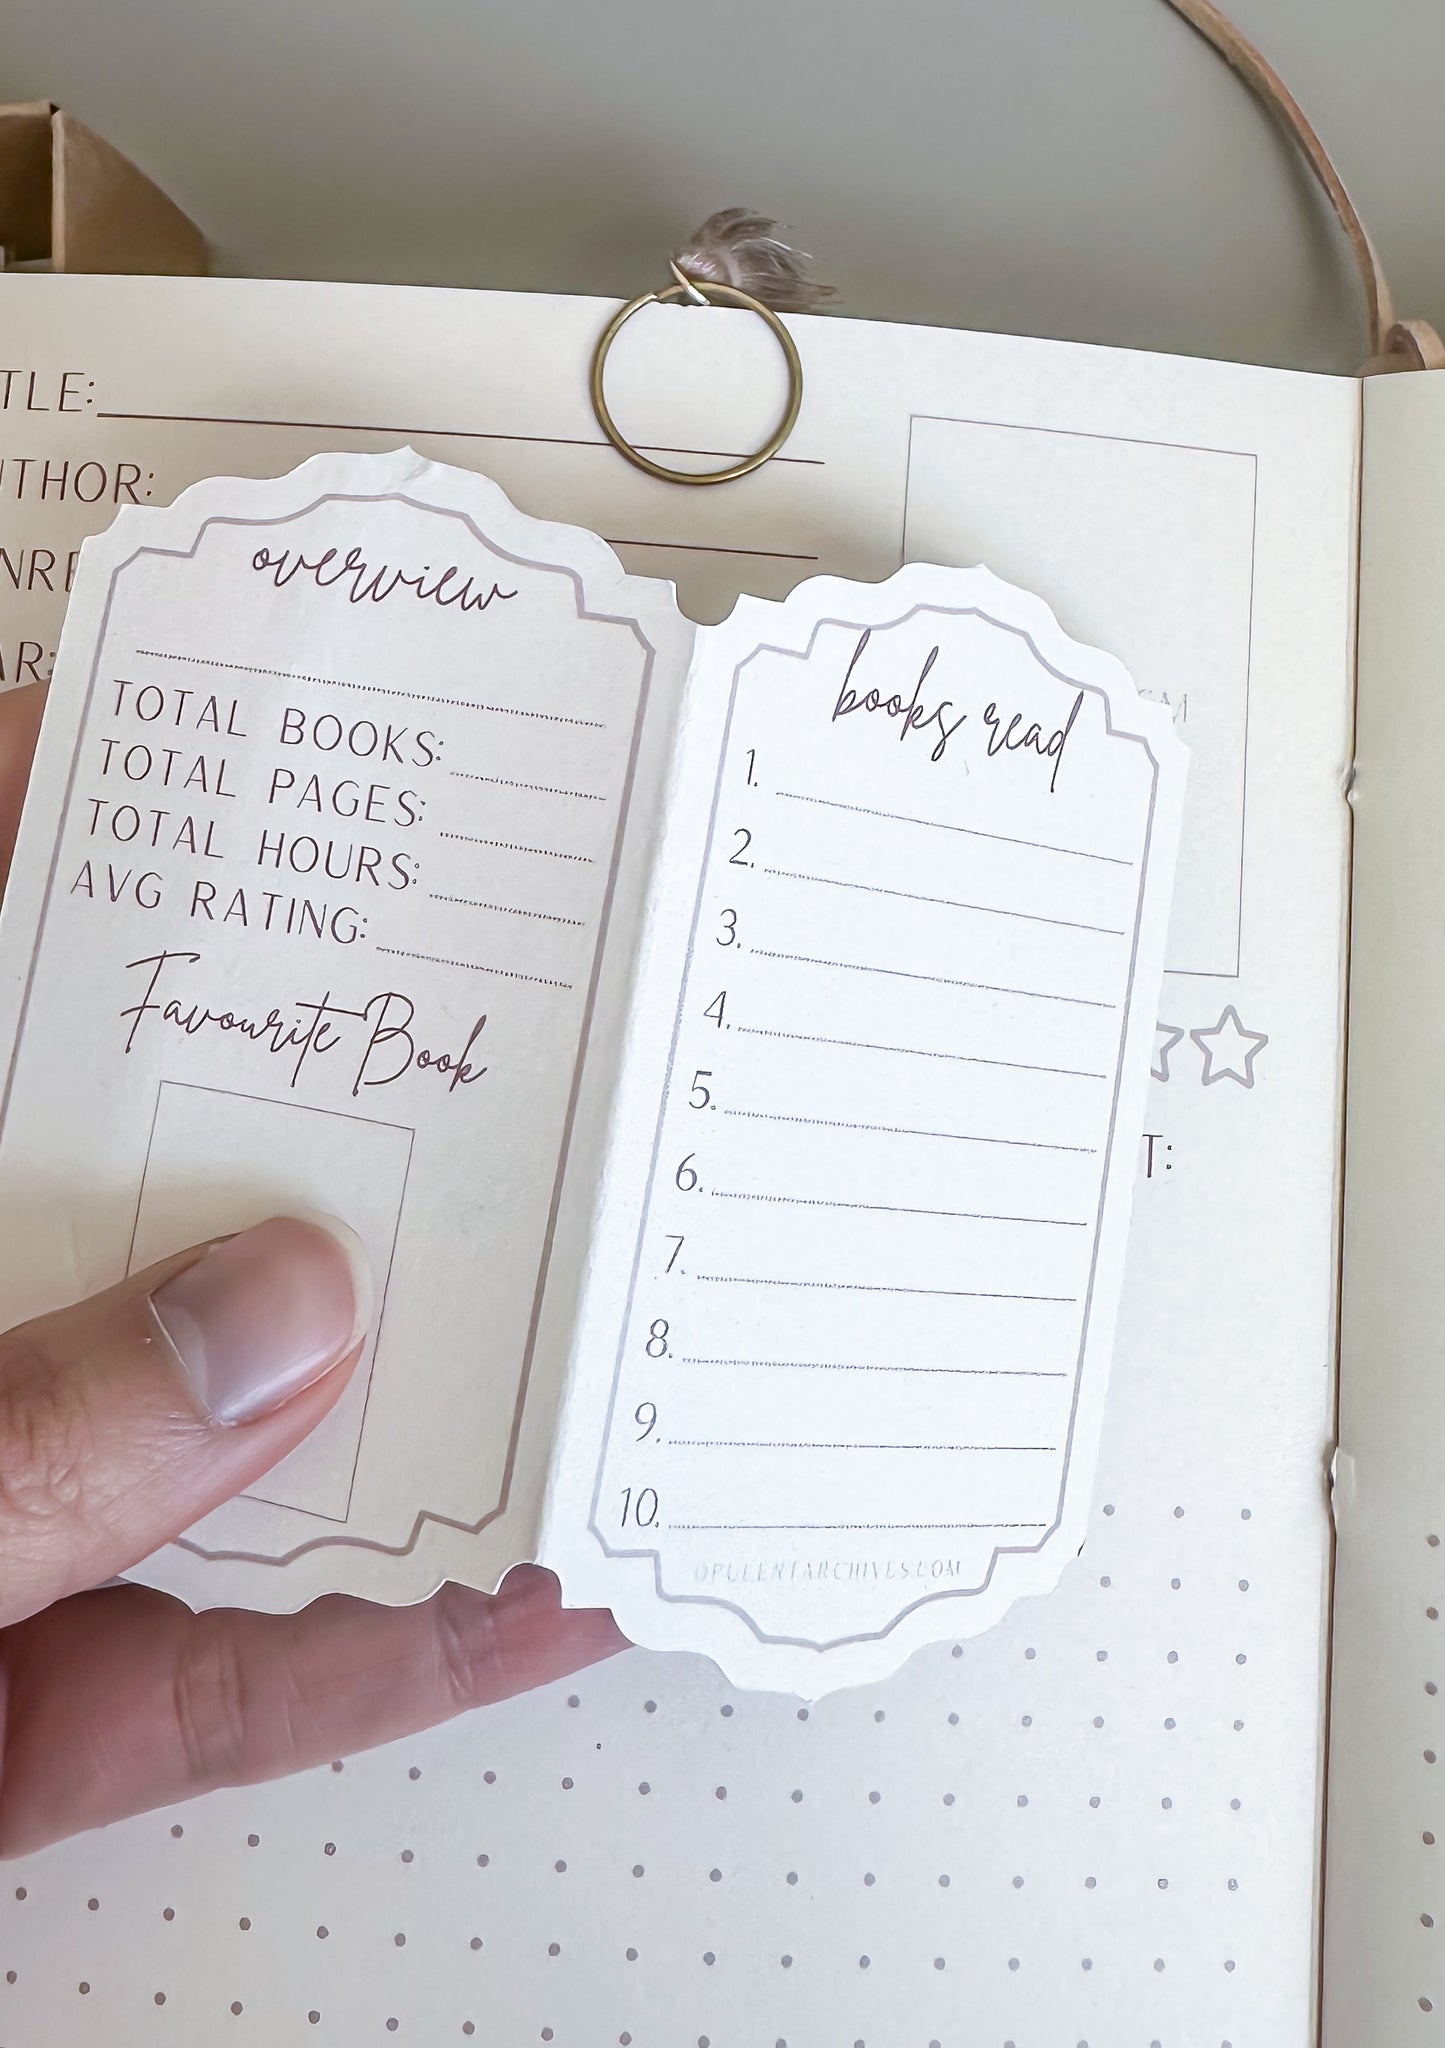 TLE:
UTHOR:
NRE
AR:
overview
TOTAL BOOKS:
TOTAL PAGES:
TOTAL HOURS:
AVG RATING:
Favourite Book
books read
1.
2.
3.
4.
5.
6.
7.
8.
9.
10.
OPULENTARCHIVES.COM
T: